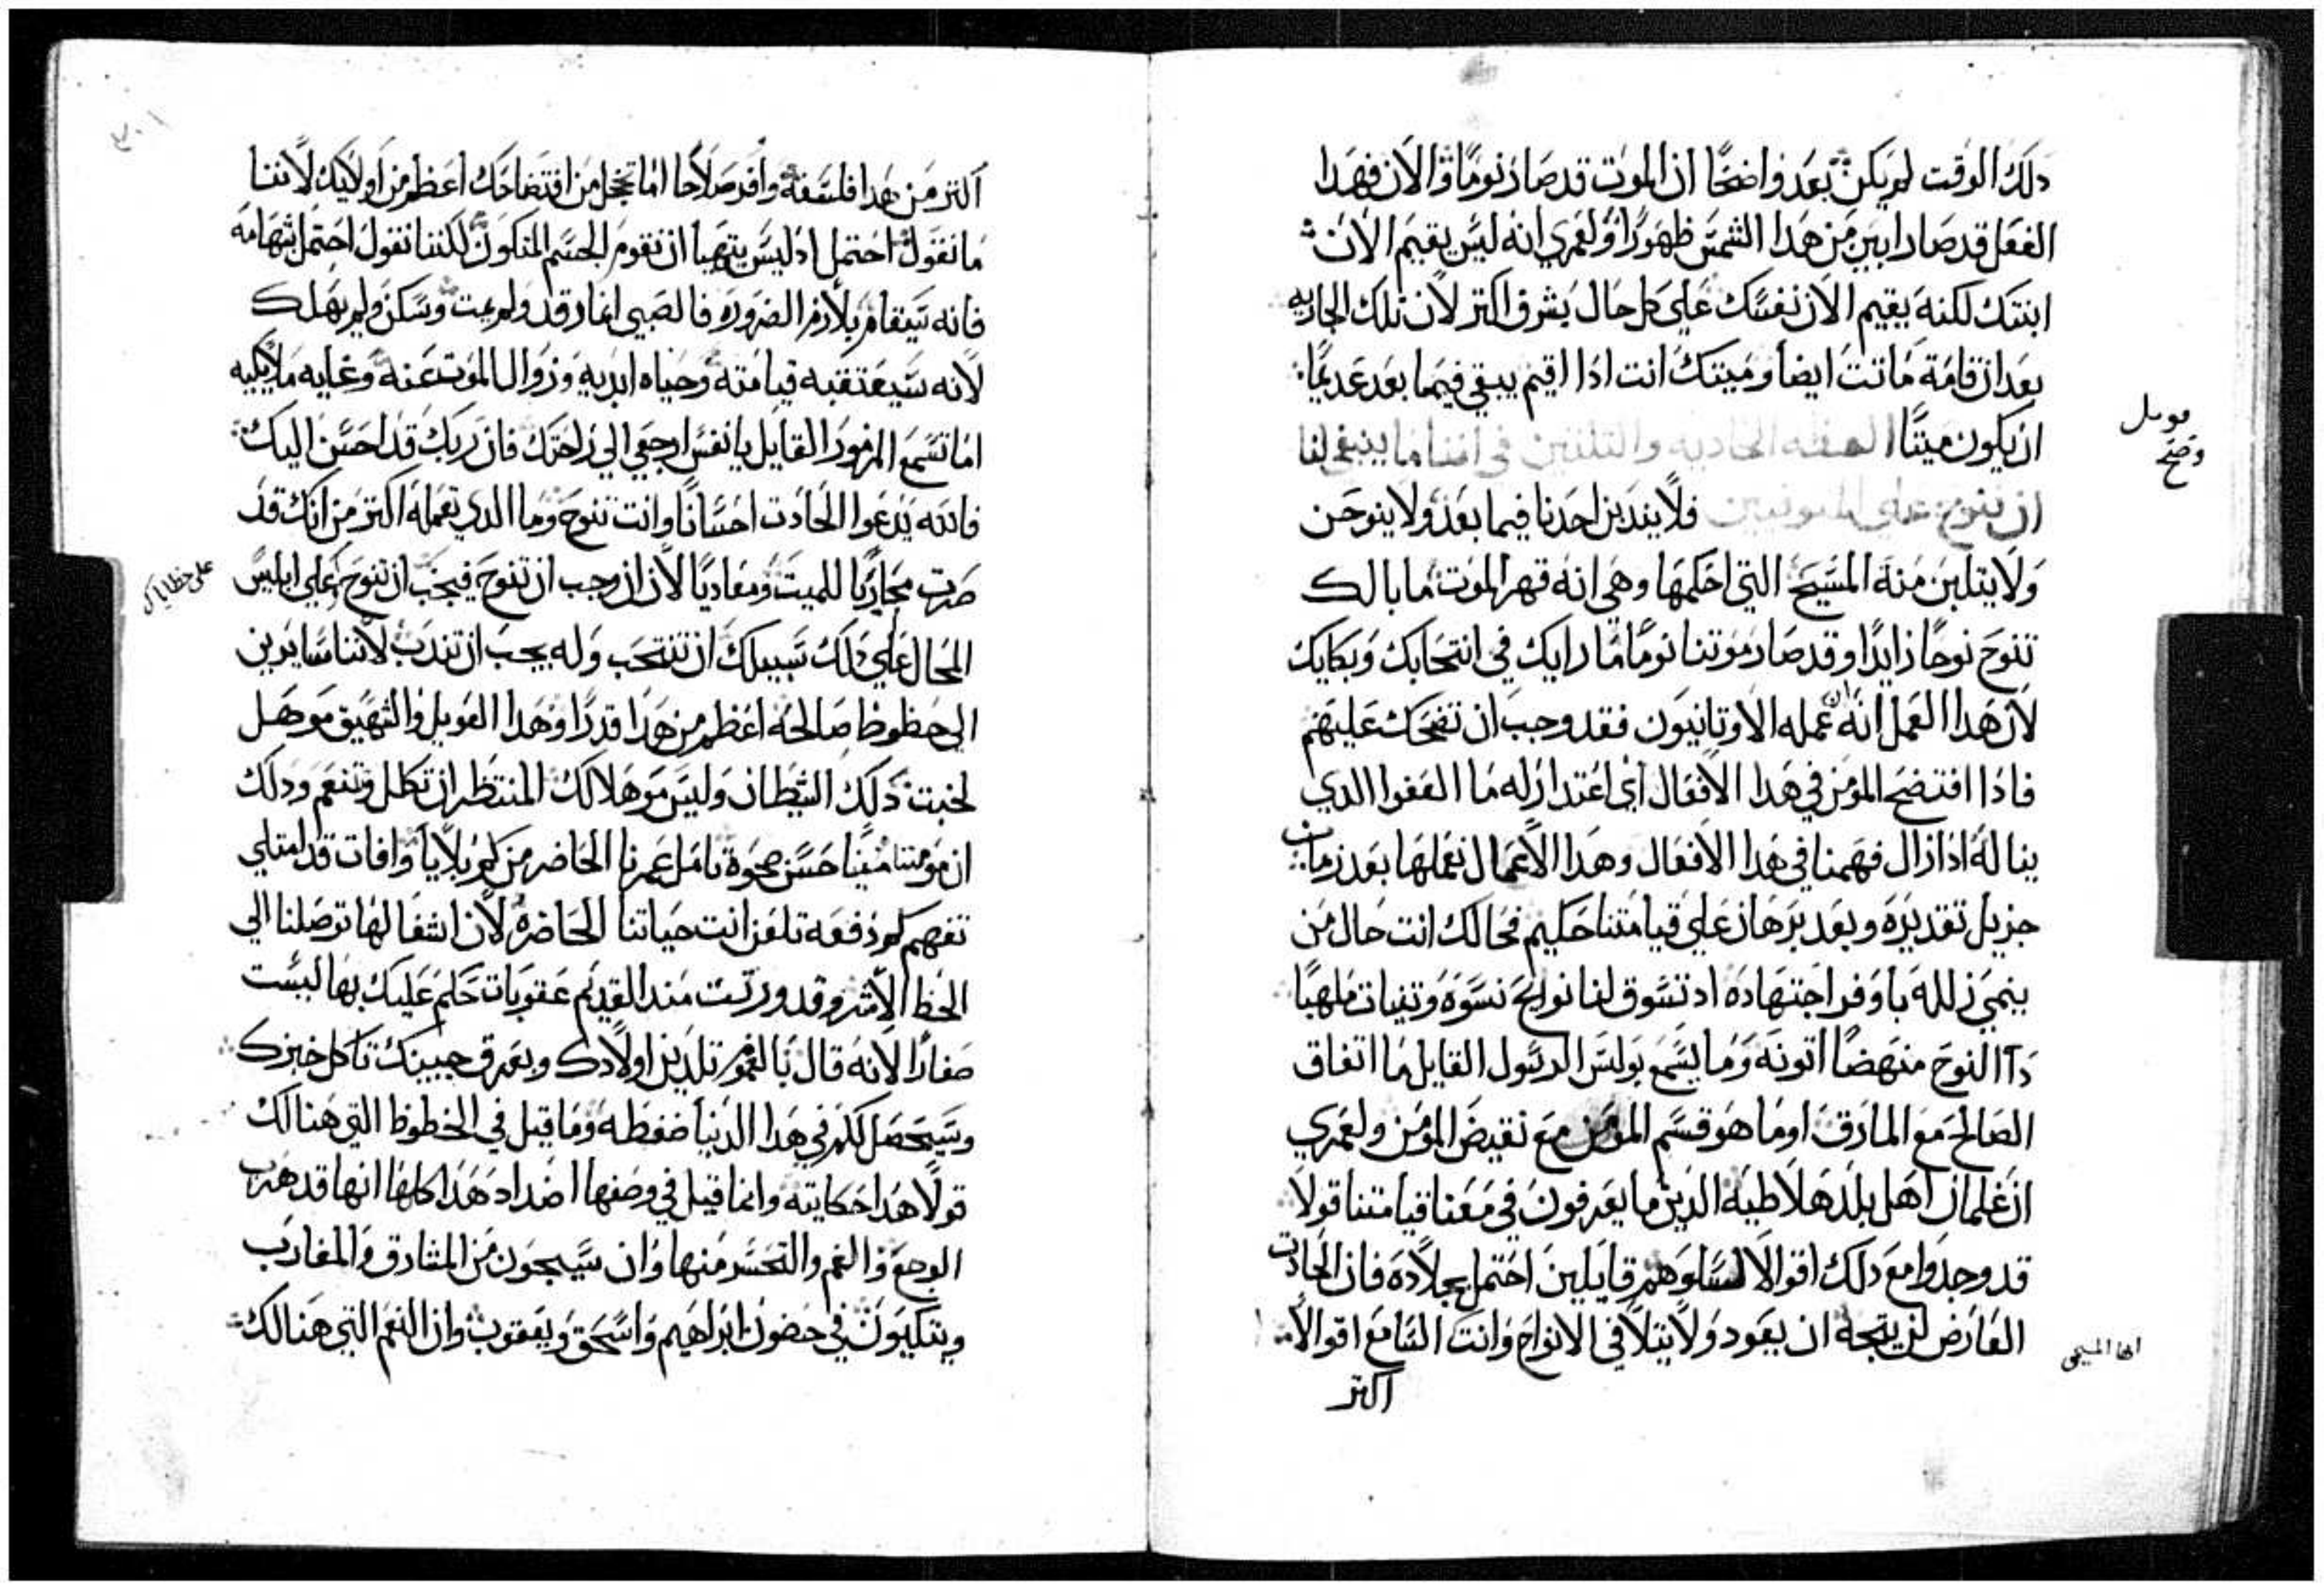 دلك الوقت لم يكن بعد واضحًا ان الموت قد صار نومًا والان فهدا
الفعل قد صار ابين من هدا الشمس ظهورًا ولعمري انه ليس يقيم الان
ابنتك لكنه يقيم الان نفسك على كل حال بشرف اكتر لان تلك الجاريه
بعد ان قامة ماتت ايضا وميتك انت ادا اقيم يبقي فيما بعد عديمًا
ان يكون ميتًا العظه الحاديه والتلتين في اننا ما ينبغي لنا
ان ننوح علي المتوفيين فلا يندبن احدنا فيما بعد ولا ينوحن
ولا يتلبن منة المسيح التي احكمها وهي انه قهر الموت ما بالك
تنوح نوحًا زايدًا وقد صار موتنا نومًا ما رايك في انتحابك وبكايك
لان هدا العمل انه ان عمله الاوتانيون فقد وجب ان تضحك عليهم
فادا افتضح المومن في هدا الافعال اي اعتدار له ما العفوا الدي
يناله ادا زال فهمنا في هدا الافعال وهدا الاعمال نعملها بعد زمان
جزيل تقديره وبعد برهان علي قيامتنا حكيم فحالك انت حال من
ينمي زلله باوفر اجتهاده اد تسوق لنا نوايح نسوة وتنيات ملهبًا
دا النوح منهضًا اتونه وما يسمع بولس الرسول القايل ما اتفاق
الصالح مع المارق اوما هو قسم المومن مع نقيض المومن ولعمري
ان غلمان اهل بلد هلاطيه الدين ما يعرفون في معنا قيامتنا قولا
قد وجدوا مع دلك اقوالا لسلوهم قايلين احتمل بجلاده فان الحادت
العارض لن يتجه ان يعود ولا يتلافي الانواح وانت السامع اقوالا
اكتر
موسل
وضح
ايها المسيحي
اكتر من هدا فلسفة وافر صلاحا اما تخجل من افتضاحك اعظم من اولايك لاننا
ما نقول احتمل اد ليس يتهيا ان نقوم الجسم المتكون لكننا نقول احتمل بشهامه
فانه سيقام بلازم الضروره فالصبي انما رقد ولم يمت وسكن ولم يهلك
لانه سيعتقبه قيامته وحياه ابديه وزوال الموت عنه وغايه ملايكيه
اما تسمع المزمور القايل يا نفس ارجعي الي راحتك فان ربك قد احسن اليك
فالله يدعوا الحادت احسانًا وانت تنوح وما الدي تعمله اكتر من انك قد
صرت محاربًا للميت ومعاديًا لان ان وجب ان تنوح فيجب ان تنوح علي ابليس
على خطاياك
المحال علي دلك سبيلك ان تنتحب وله يجب ان تندب لاننا سايرين
الي حظوظ صالحه اعظم من هدا قدرًا وهدا العويل والشهيق موهل
لخبت دلك الشيطان وليس موهلا لك المنتظر ان تكلل وتنعم ودلك
ان موتنا مينا حسن صحوة تامل عمرنا الحاضر من كم بلايا وافات قد امتلي
تفهم كم دفعه تلعن انت حياتنا الحاضره لان انتفالها توصلنا الي
الحظ الاشر وقد ورتت مند القديم عقوبات حكم عليك بها ليست
صغارا لانه قال بالغموم تلدين اولادك وبعرق جبينك تاكل خبزك
وسيحصل لكم في هدا الدنيا ضغطه وما قيل في الحظوظ التي هنالك
قولا هدا حكايته وانما قيل في وصفها اضداد هدا كلها انها قد هرب
الوجع والغم والتحسر منها وان سيجون من المشارق والمغارب
ويتكيون في حضون ابراهيم واسحق ويعقوب وان النعم التي هنالك